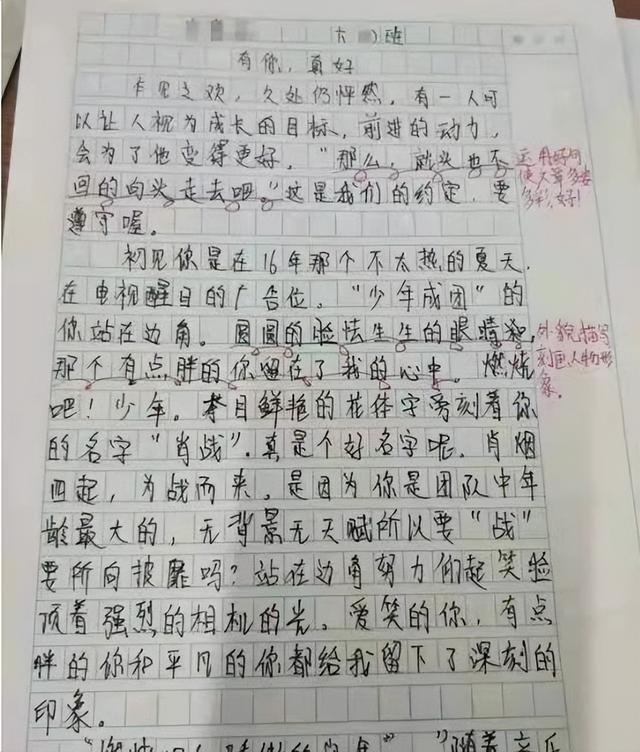 六 班
有你，真好
乍见之欢，久处仍怦然，有一人可
以让人视为成长的目标，前进的动力，
会为了他变得更好。“那么，就头也不
回的向头走去吧。”这是我们的约定，要
遵守喔。
运用好句,
使文章多姿
多彩,好!
初见你是在16年那个不太热的夏天，
在电视醒目的广告位。“少年成团”的
你站在边角。圆圆的脸怯生生的眼睛和，
那个有点胖的你留在了我的心中。燃烧
吧！少年。夺目鲜艳的花体字雕刻着你
的名字“肖战”。真是个好名字呢。肖烟
四起，为战而来。是因为你是团队中年
龄最大的，无背景无天赋所以要“战”
要所向披靡吗？站在边角努力仰起笑脸
顶着强烈的相机的光。爱笑的你，有点
胖的你和平凡的你都给我留下了深刻的
印象。
外貌描写
刻画人物形
象。